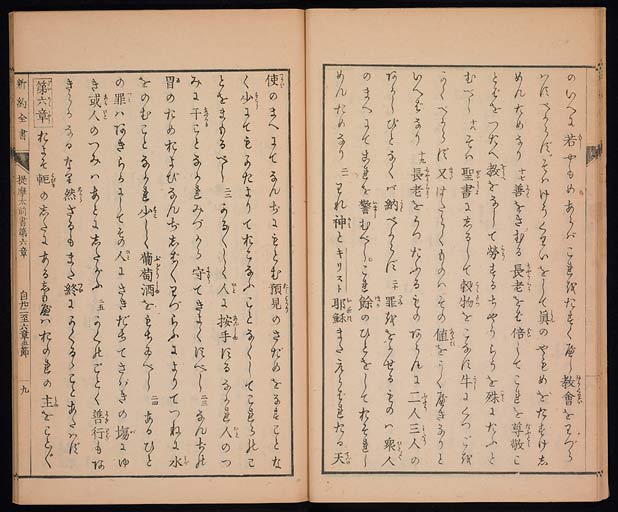 のいへに若やもめあらバこれをたすく應し教會をわづら
ハすべからず、そハけうくわいをして眞のやもめをたすけし
めんためなり 十七 善をさむる長老をバ倍してこれを尊敬こ
とをつたへ教をなして勞するちやうらうを殊にたふと
むべし 十八 そハ聖書にしるして穀物をこなす牛にくつごを
くべからず又はたらくものハその値をうく應きなりと
いへばなり 十九 長老をうつたふるものあらんに二人三人の
あかしびとなくバ納べからず 二十 罪ををかせるものハ衆人
のまへにてこれを警むべし、これ餘のひとをしておそれし
めんためなり 二一 われ神とキリスト耶穌またえらばれたる天
使のまへにてなんぢにもとむ預見のさだめをなすことな
く少にてもかたよりておこなふことなくしてこれらのこ
とをまもるべし 二二 かろがろしく人に按手するなかれ人のつ
みに干ことなかれみづから守てきよくすべし 二三 なんぢの
胃のためおよびなんぢしばしばわづらふによりてつねに水
をのむことなかれ少しく葡萄酒をもちふべし 二四 あるひと
の罪ハあきらかにしてその人にさきだちてさばきの塲にゆ
き或人のつみハあとにしたがふ 二五 かくのごとく善行もあ
きらかなるなり然ざるもまた終にかくるることあたはず
第六章 おほよそ軛のしたにあるしもべハおのれの主を
新約全書 提摩太前書第六章 九